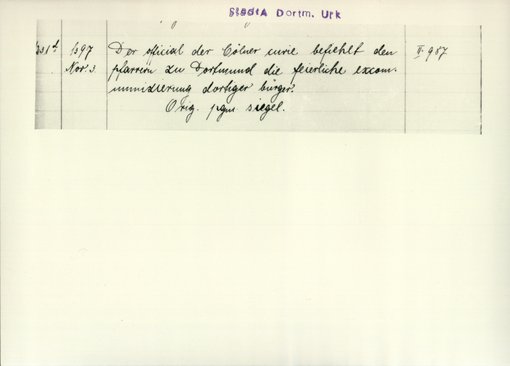 Stadt A Dortm. Urk
1397 Der official der Cölner curie befiehlt den II 987
Nov. 3 pfarrern zu Dortmund die feierliche excom-
munizierung dortiger bürger.
Orig. pgm. siegel.